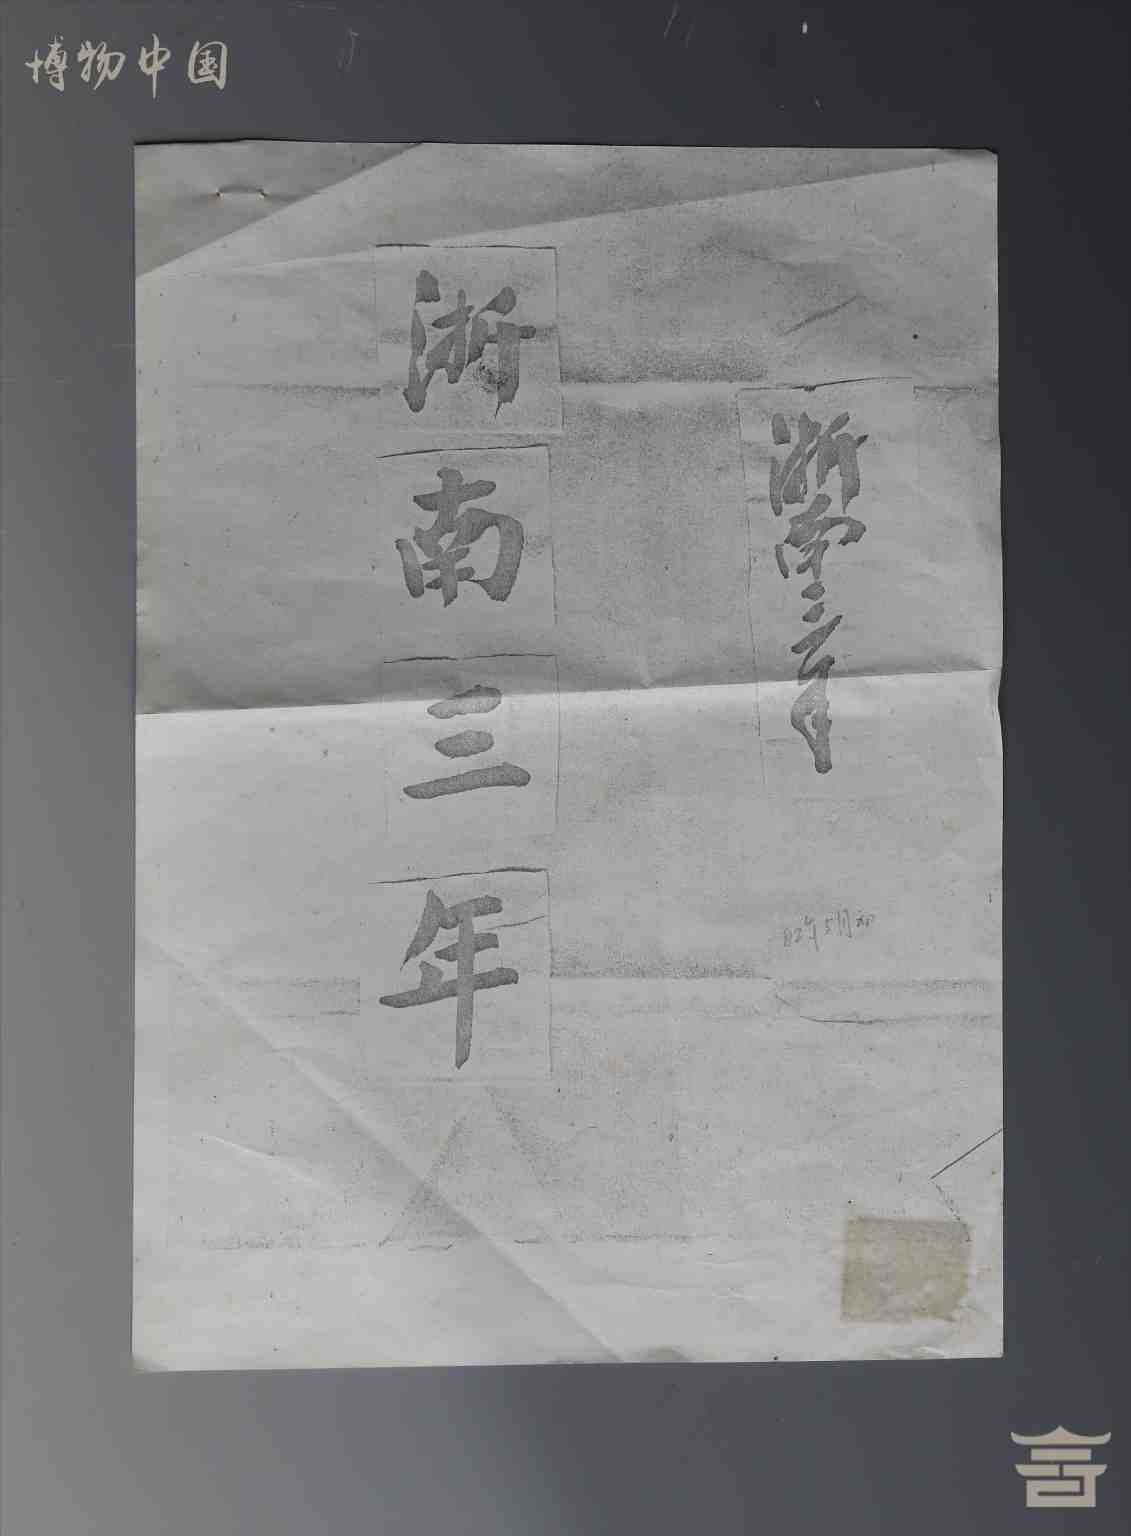 博物中国
浙南三年
浙南三年
82年5月初